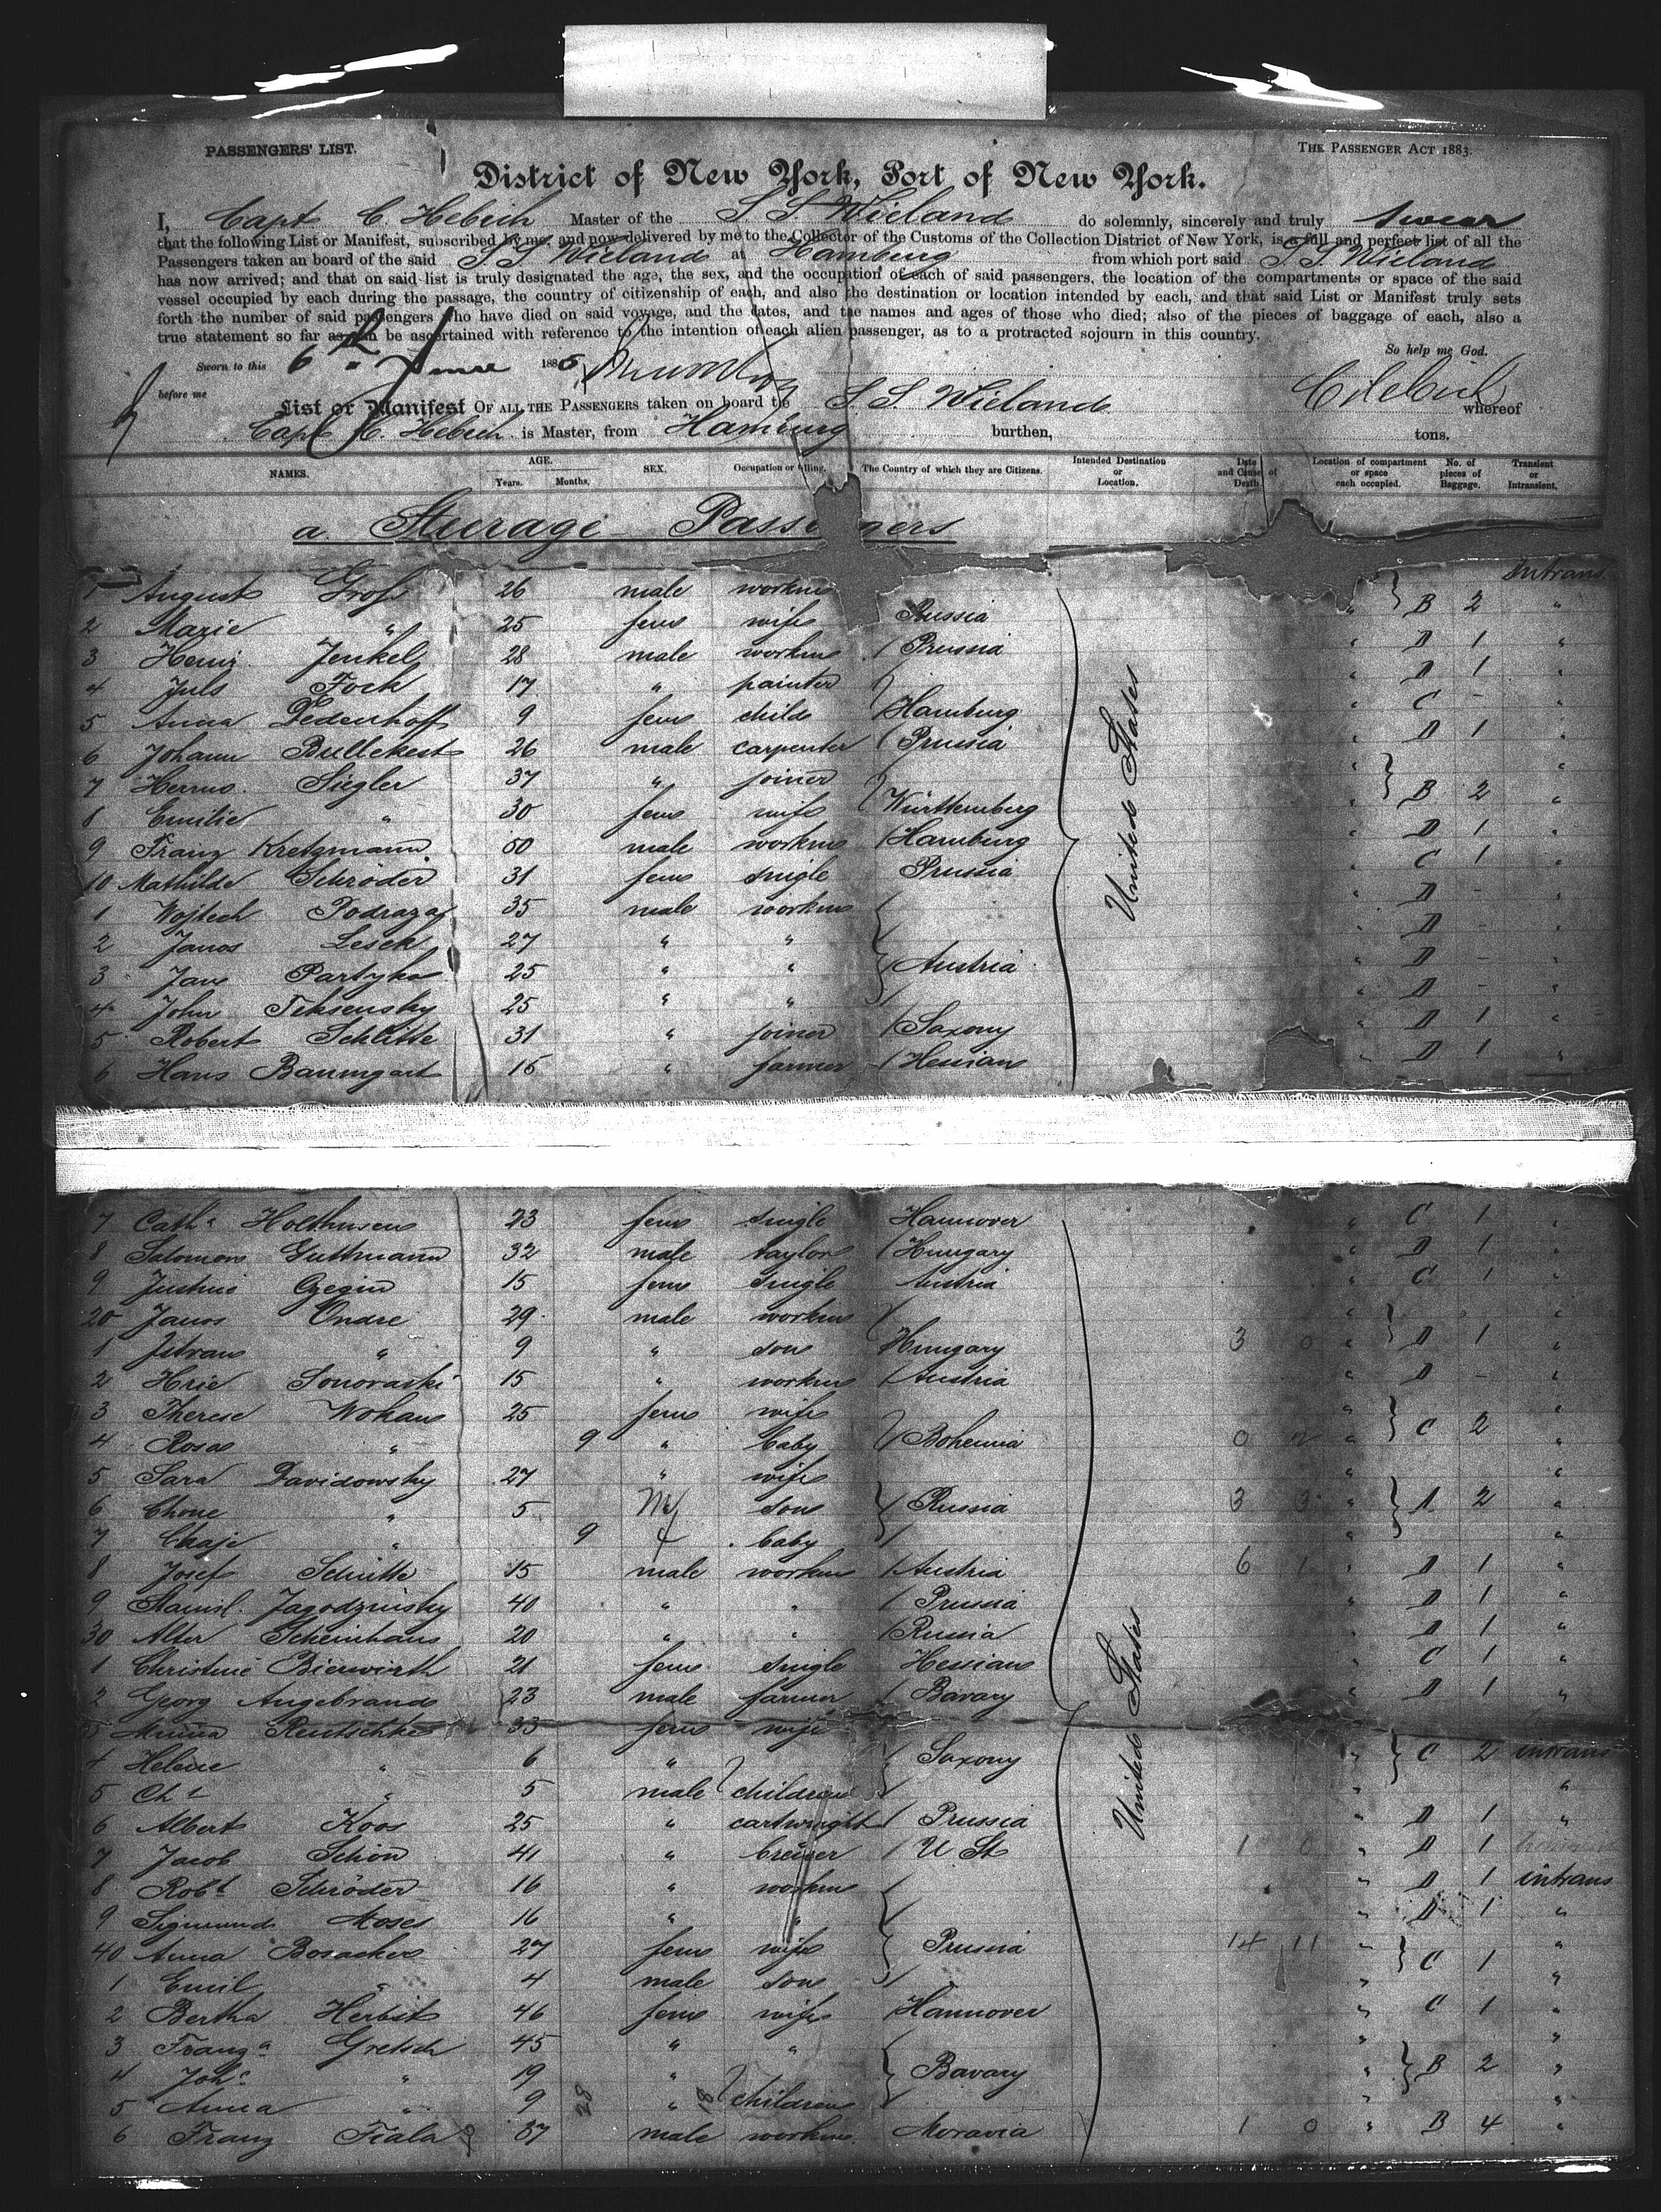 PASSENGERS' LIST.
THE PASSENGER ACT 1883.
District of New York, Port of New York.
I, Capt C. Hebich Master of the S. S. Wieland do solemnly, sincerely and truly swear
that the following List or Manifest, subscribed by me, and now delivered by me to the Collector of the Customs of the Collection District of New York, is a full and perfect list of all the
Passengers taken an board of the said S S Wieland at Hamburg from which port said S. S Wieland
has now arrived; and that on said list is truly designated the age, the sex, and the occupation of each of said passengers, the location of the compartments or space of the said
vessel occupied by each during the passage, the country of citizenship of each, and also the destination or location intended by each, and that said List or Manifest truly sets
forth the number of said passengers who have died on said voyage, and the dates, and the names and ages of those who died; also of the pieces of baggage of each, also a
true statement so far as can be ascertained with reference to the intention of each alien passenger, as to a protracted sojourn in this country.
So help me God.
Sworn to this 6th June 1885
before me
List or Manifest OF ALL THE PASSENGERS taken on board the S. S. Wieland whereof
Capt C. Hebich is Master, from Hamburg burthen, tons.
NAMES. AGE. Years. Months. SEX. Occupation or Calling. The Country of which they are Citizens. Intended Destination or Location. Date and Cause of Death Location of compartment or space each occupied. No. of pieces of Baggage. Transient or Intransient.
a. Steerage Passengers
1 August Gross 26 male workm Intrans
2 Marie " 25 fem wife Russia " B 2 "
3 Heinr. Jenkel 28 male workm Prussia " D 1 "
4 Juls Fock 17 " painter " D 1 "
5 Anna Dedenhoff 9 fem child Hamburg " C - "
6 Johann Bullekest 26 male carpenter Prussia " D 1 "
7 Herrm. Siegler 37 " joiner " "
8 Emilie " 30 fem wife Württemberg " B 2 "
9 Franz Kretzmann 50 male workm Hamburg " D 1 "
10 Mathilde Schröder 31 fem single Prussia " C 1 "
1 Wojtech Podraza 35 male workm " D - "
2 Janos Lesek 27 " " " D - "
3 Jan Partyka 25 " " Austria " D - "
4 John Teksensky 25 " " " D - "
5 Robert Schlitte 31 " joiner Saxony " D 1 "
6 Hans Baumgart 15 " farmer Hessian " D 1 "
United States
7 Cath.a Holthusen 23 fem single Hannover " C 1 "
8 Salomon Guttmann 32 male taylor Hungary " D 1 "
9 Justine Czegin 15 fem single Austria " C 1 "
20 Janos Ondre 29 male workm " "
1 Istvan " 9 " son Hungary 3 0 " D 1 "
2 Hrie Sonoraski 15 " workm Austria " D - "
3 Therese Wokau 25 fem wife " "
4 Rosa " 9 " baby Bohemia 0 2 " C 2 "
5 Sara Davidowsky 27 " wife " "
6 Chone " 5 M son Russia 3 3 " A 2 "
7 Chaje " 9 f baby " "
8 Josef Schütte 15 male workm Austria 6 1 " D 1 "
9 Stanisl. Jagodzinsky 40 " " Prussia " D 1 "
30 Alter Scheinhaus 20 " " Russia " D 1 "
1 Christine Bierwirth 21 fem single Hessian " C 1 "
2 Georg Angebrand 23 male farmer Bavary " D 1 "
3 Minna Rentschke 33 fem wife
4 Helene " 6 " Saxony " C 2 intrans
5 Ch.t " 5 male children " "
6 Albert Koos 25 " cartwright Prussia " D 1 "
7 Jacob Schön 41 " breuer U St 1 0 " D 1
8 Robt Schröder 16 " workm " D 1 intrans
9 Sigmund Moses 16 " " " D 1 "
40 Anna Bosacker 27 fem wife Prussia 14 11 " C 1 "
1 Emil " 4 male son " "
2 Bertha Herbst 46 fem wife Hannover " C 1 "
3 Franz.a Gretsch 45 " " " "
4 Joh.a " 19 " Bavary " B 2 "
5 Anna " 9 " children " "
6 Franz Fiala 37 male workm Moravia 1 0 " B 4 "
United States